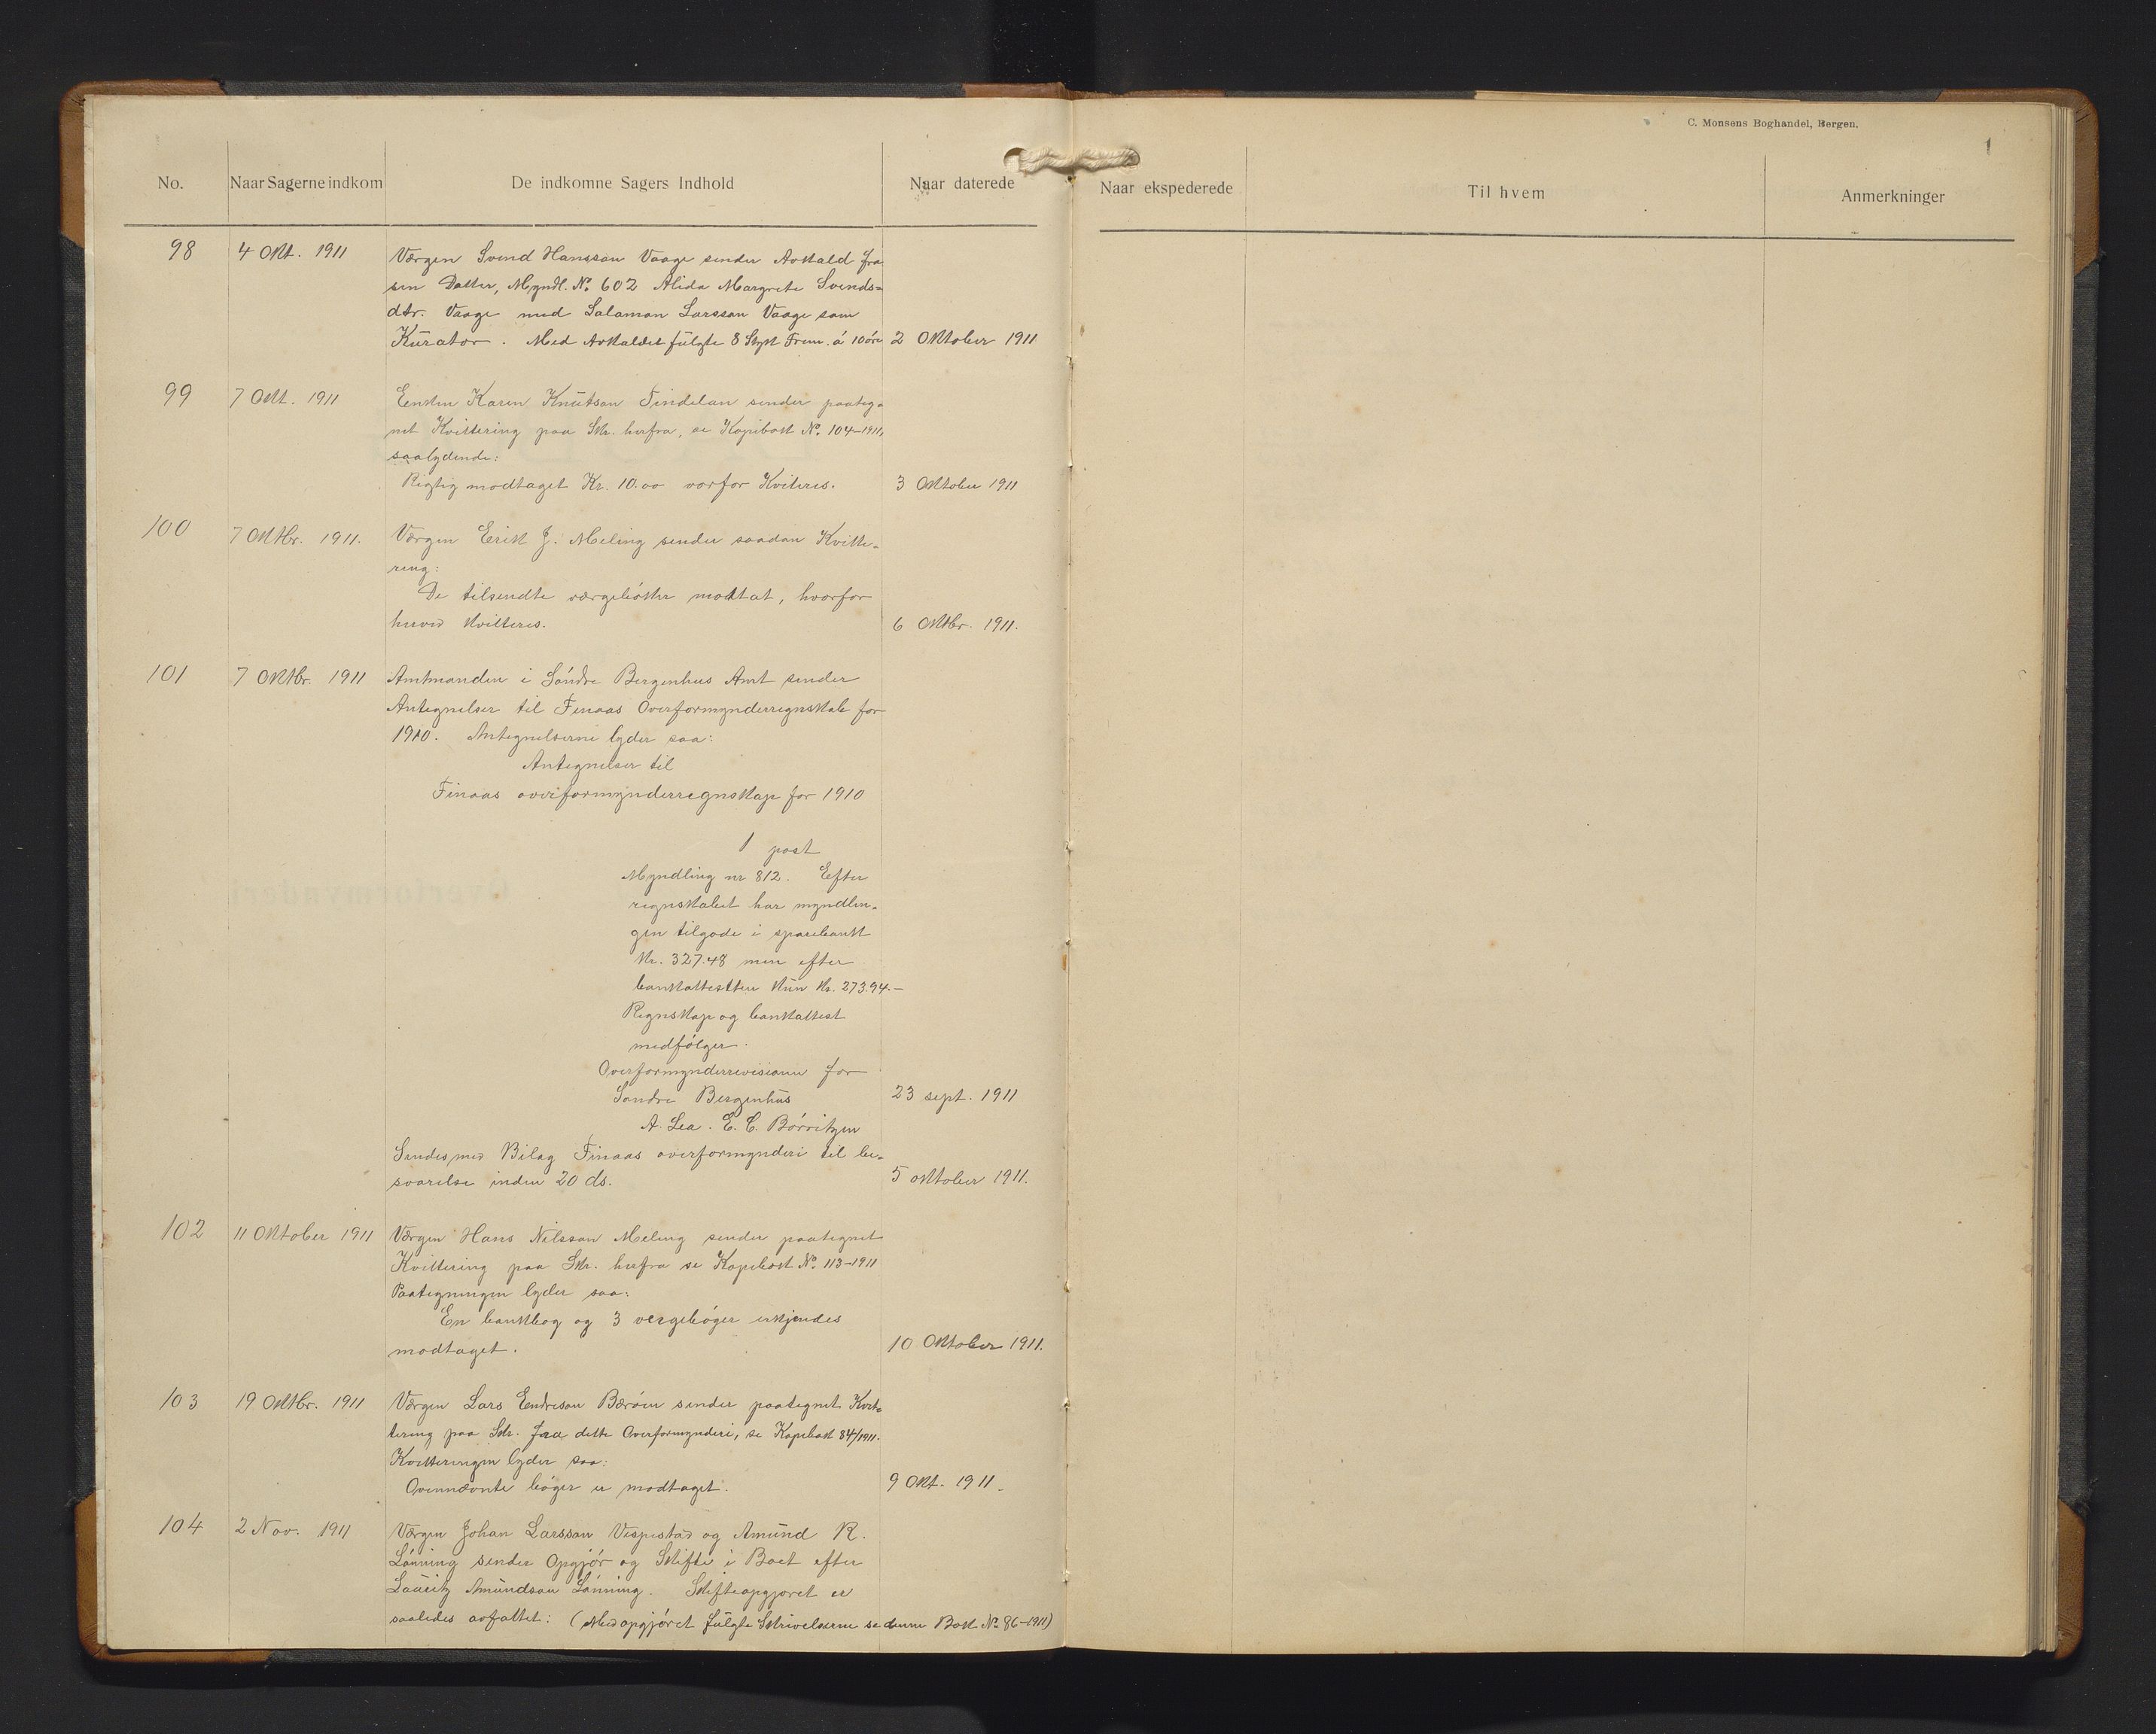 C. Monsens Boghandel, Bergen.
1
No. Naar Sagerne indkom De indkomne Sagers Indhold Naar daterede Naar ekspederede Til hvem Anmerkninger
98 4 Okt. 1911 Værgen Svend Hansson Vaage sender Avkald fra
sin Datter, Myndl. No. 602 Alida Margrete Svends=
dtr. Vaage med Salamon Larsson Vaage som
Kurator. Med Avkaldet fulgte 8 Stykk Frim. á 10 öre 2 Oktober 1911
99 7 Okt. 1911 Enken Karen Knutson Tindelan sender paateg=
net Kvittering paa Skr. herfra, se Kopibok No. 104-1911,
saalydende:
Rigtig modtaget Kr. 10.00 vorfor Kviteres. 3 Oktober 1911
100 7 Oktbr. 1911. Værgen Eerik J. Meling sender saadan Kvitte=
ring:
De tilsendte værgebóker modtat, hvorfor
herved kvitteres. 6 Oktbr. 1911.
101 7 Oktbr. 1911 Amtmanden i Söndre Bergenhus Amt sender
Antegnelser til Finaas Overformynderregnskab for
1910. Antegnelserne lyder saa:
Antegnelser til
Finaas overformynderregnskap for 1910
1 post
Myndling nr 812. Efter
regnskabet har myndlin=
gen tilgode i sparebank
kr. 327.48 men efter
bankattesten kun kr. 273.94.-
Regnskap og bankattest
medfölger.
Overformynderrevisionen for
Söndre Bergenhus 23 sept. 1911
A. Lea. E. C. Börritzen
Sendes med Bilag Finaas overformynderi til be=
svarelse inden 20 ds. 5 oktober 1911.
102 11 Oktober 1911 Værgen Hans Nilsson Meling sender paategnet
Kvittering paa Skr. herfra se Kopibok No. 113-1911
Paategningen lyder saa:
En bankbog og 3 vergebóger erkjendes
modtaget. 10 Oktober 1911.
103 19 Oktbr. 1911 Værgen Lars Endreson Bæröen sender paategnet Kvit=
tering paa Skr. fra dette Overformynderi, se Kopibok 84/1911.
Kvitteringen lyder saa:
Ovennævnte bóger er modtaget. 9 Okt. 1911.
104 2 Nov. 1911 Værgen Johan Larsson Vespestad og Amund R.
Lönning sender Opgjór og Skifte i Boet efter
Lauritz Amundson Lönning. Skifteopgjoret er
saaledes avfattet: (Med opgjöret fulgte Skrivelserne se denne Bok No. 86-1911)